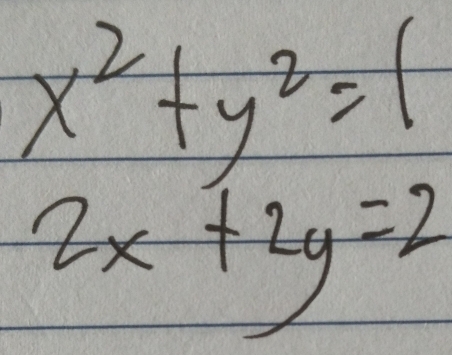 x² + y² = 1
2x + 2y = 2